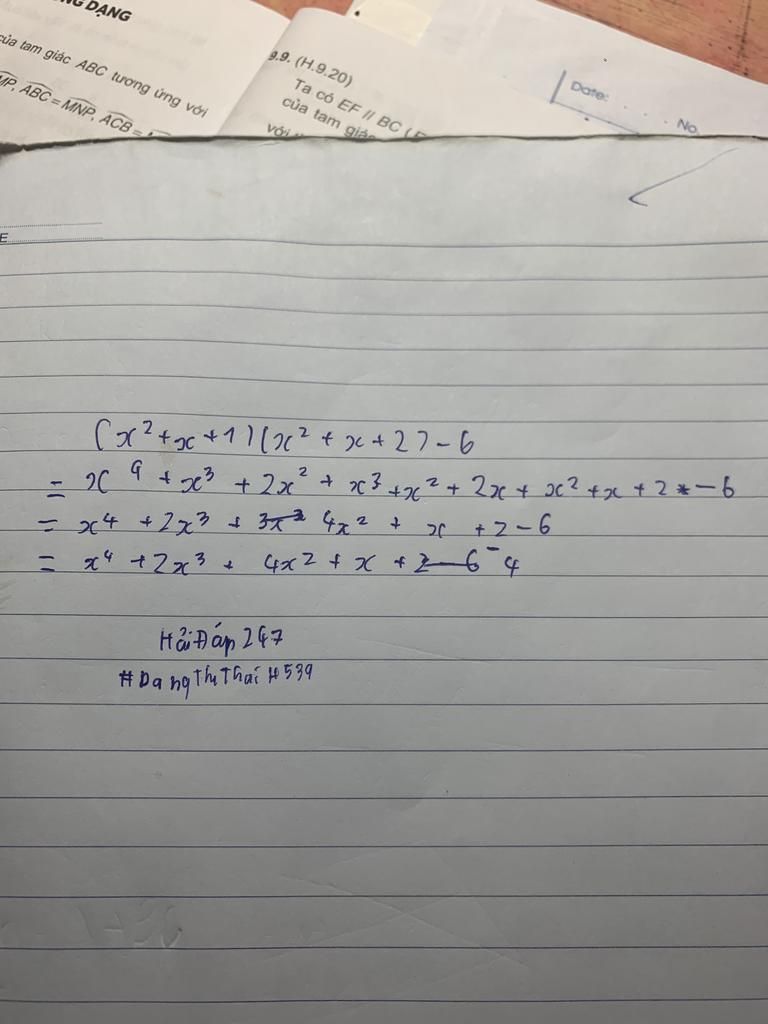 NG DẠNG
của tam giác ABC tương ứng với
MP, ABC = MNP, ACB =
9.9. (H.9.20)
Ta có EF // BC (
của tam giác
với
Date:
No.
E
(x² + x + 1)(x² + x + 2) - 6
= x⁴ + x³ + 2x² + x³ + x² + 2x + x² + x + 2 - 6
= x⁴ + 2x³ + 4x² + x + 2 - 6
= x⁴ + 2x³ + 4x² + x - 4
Hỏi Đáp 247